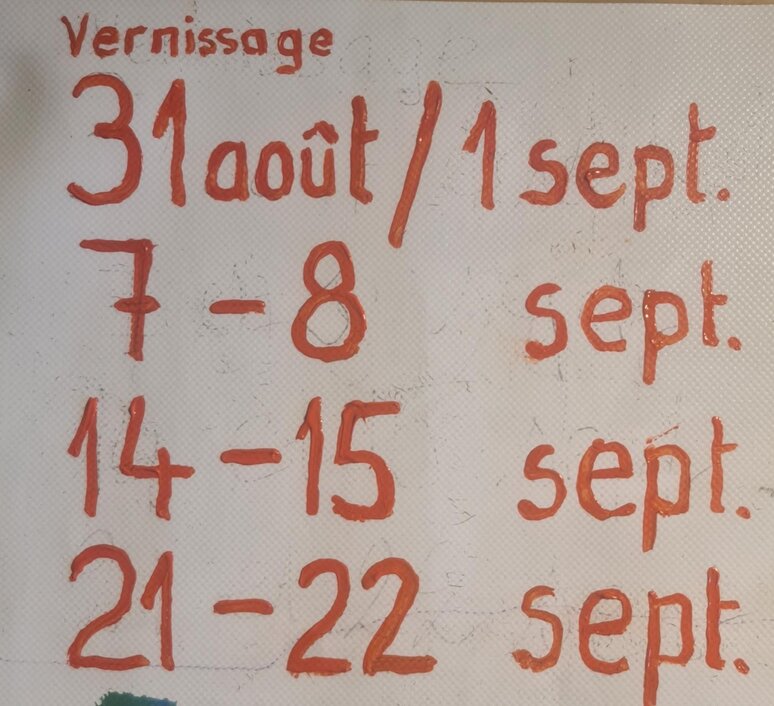 Vernissage
31 août / 1 sept.
7 - 8 sept.
14 - 15 sept.
21 - 22 sept.